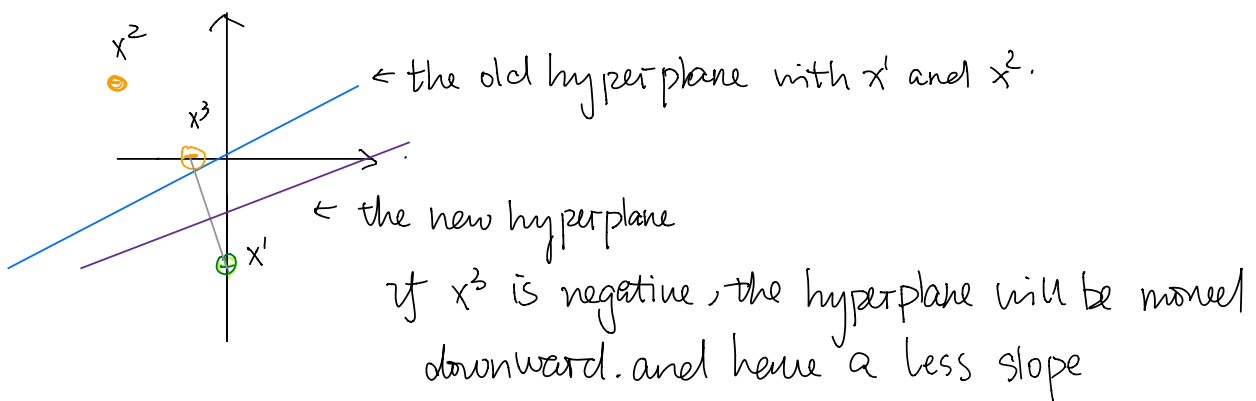 x²
← the old hyperplane with x¹ and x².
x³
← the new hyperplane
x¹
if x³ is negative, the hyperplane will be moved
downward. and have a less slope